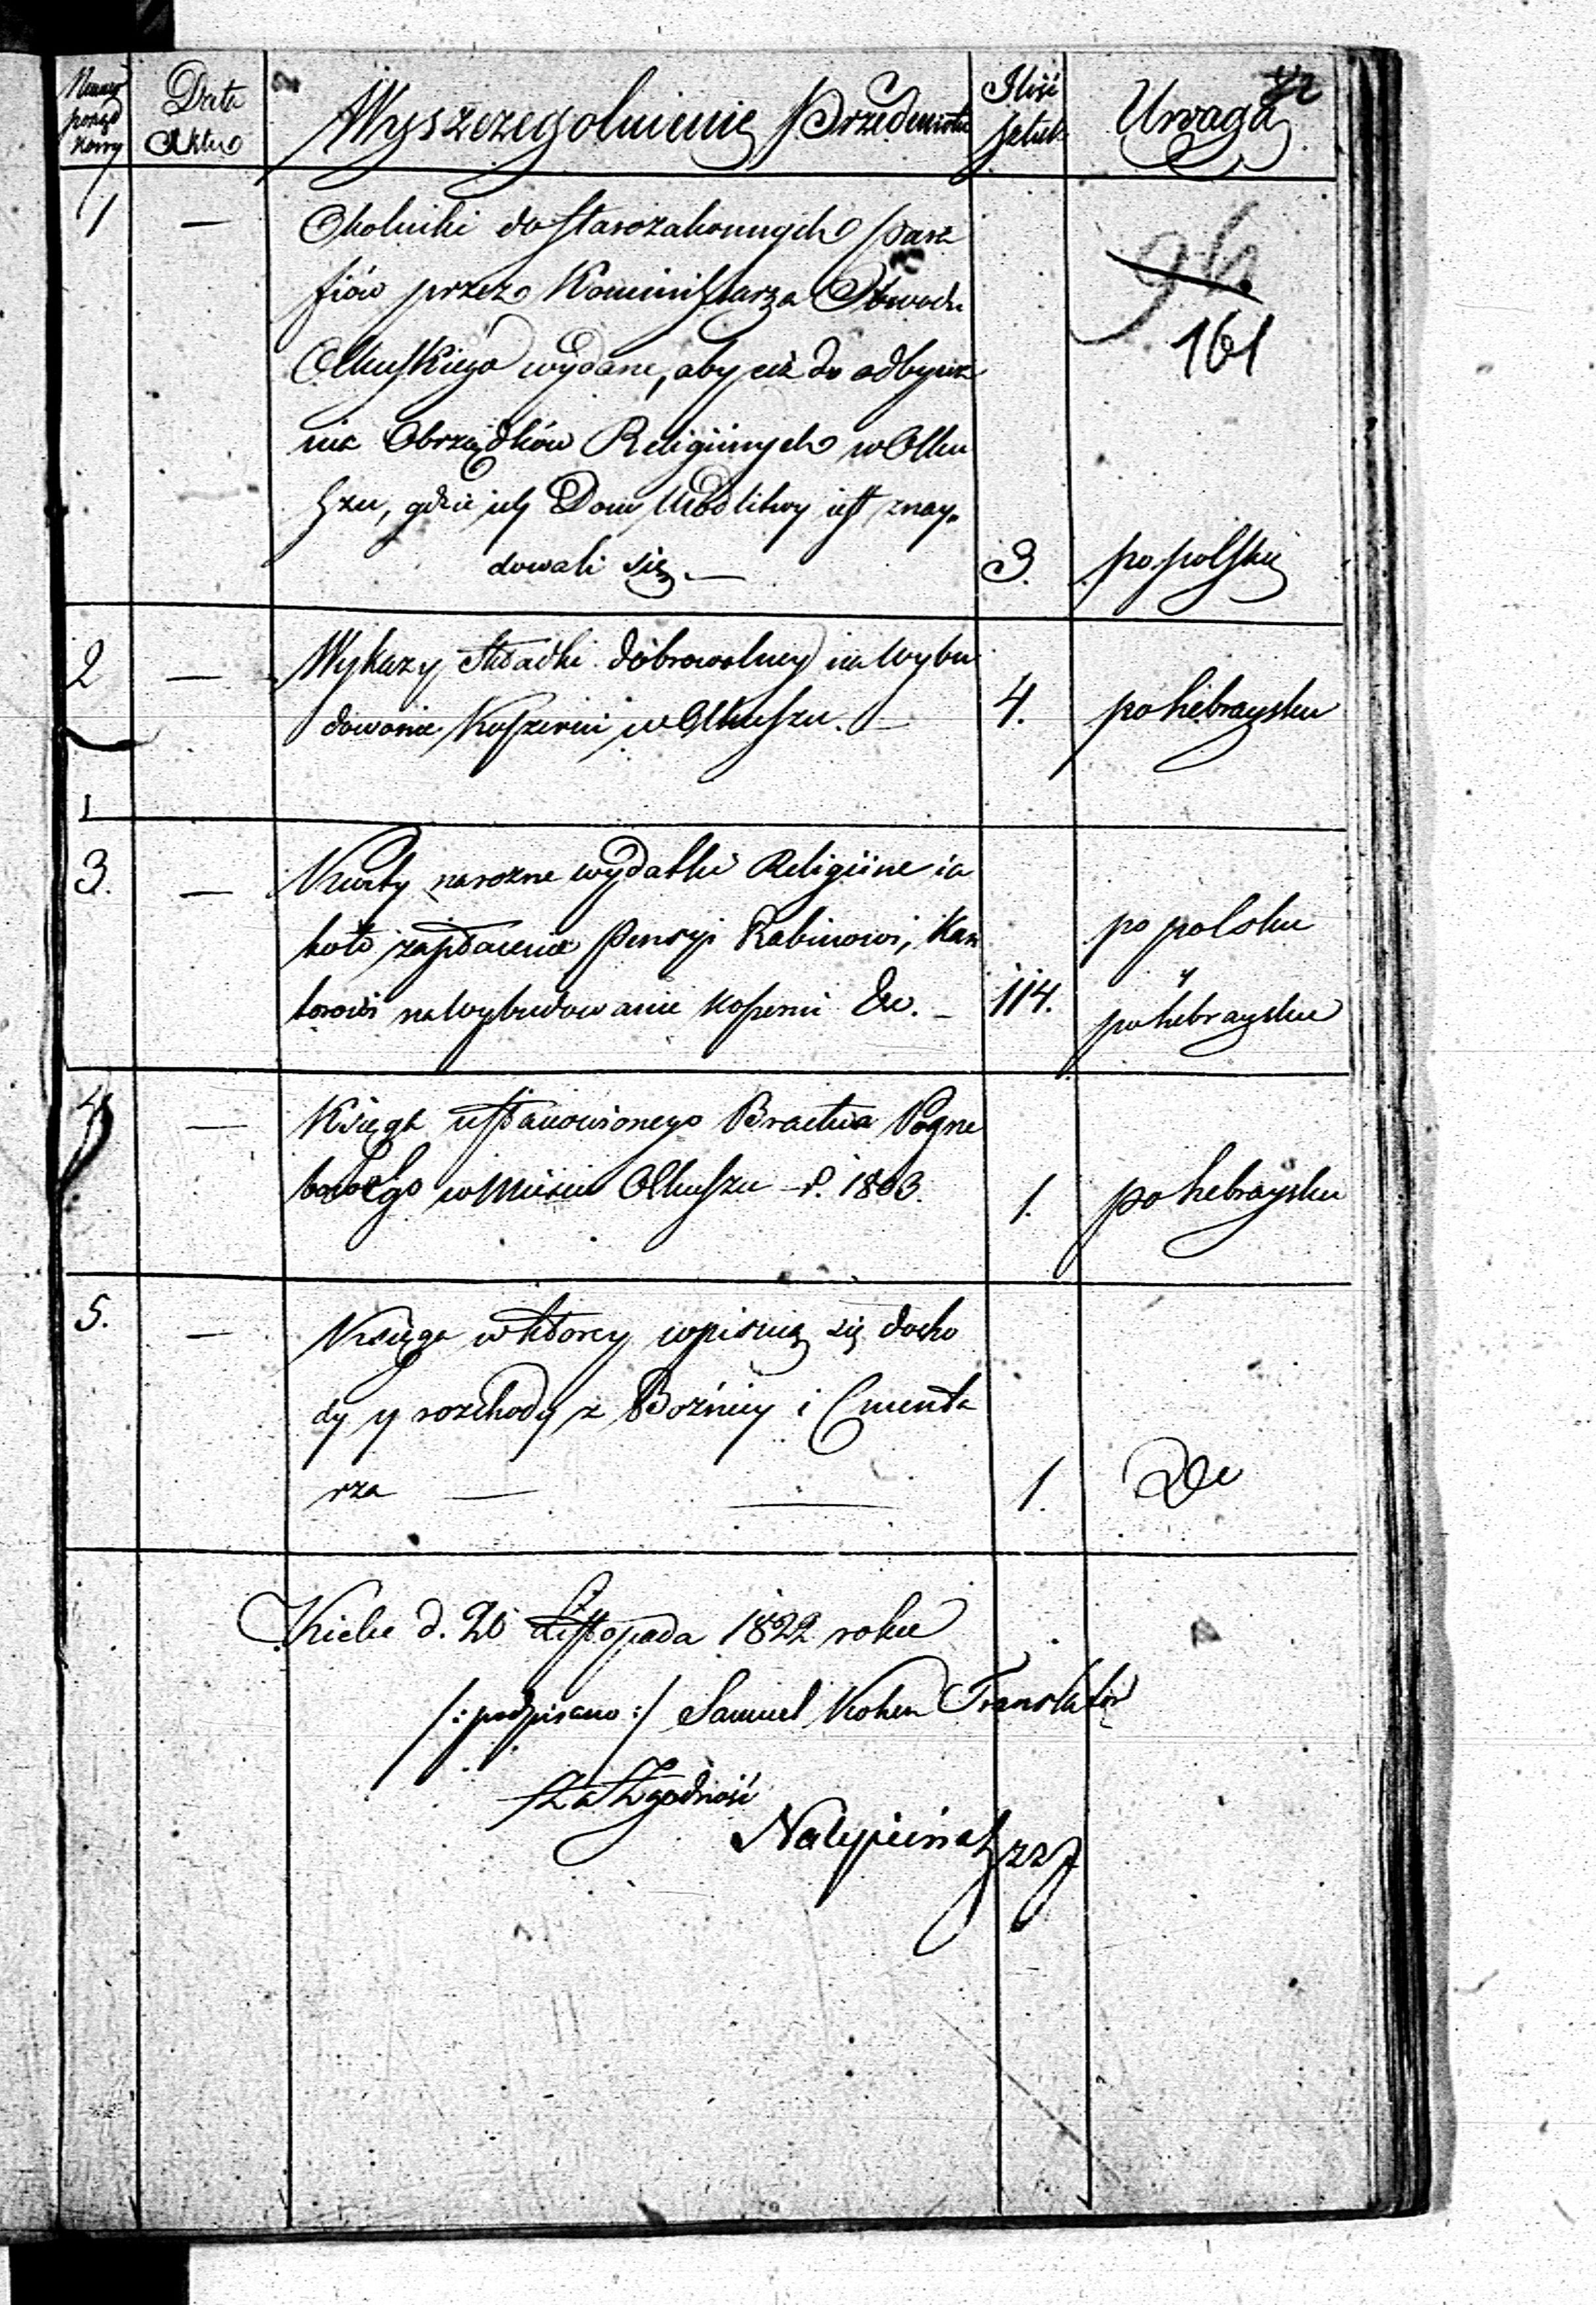 Numer porząd kowy
Data Aktu
Wyszczegolnienie Przedmiotu
Ilość sztuk
Uwaga
1 — Okolniki do starozakonnych para
fiów przez Kommissarza Obwodu
Olkuskiego wydane, aby ciż do odbywa
nia Obrządków Religiinych w Olku
szu, gdzie ich Dom Modlitwy iest znay=
dowali się — 3. po polsku
161
2 — Wykazy składki dobrowolney na wybu
dowanie Koszerni w Olkuszu. — 4. po hebraysku
3. — Kwity na rozne wydatki Religiine ia
koto zapłacenia Pensyi Rabinowi, Kan
torowi na wybudowanie koszerni &c. — 114. po polsku
y
po hebraysku
4 — Księga ustanowionego Bractwa Pogrze
bowego w Mieście Olkuszu r. 1803. 1. po hebraysku
5. — Księga w ktorey wpisuią się docho
dy y rozchody z Bożnicy i Cmenta
rza — — 1.
Kielce d. 20 Listopada 1822 roku
/: podpisano :/ Samuel Kohen Translator
Za Zgodność